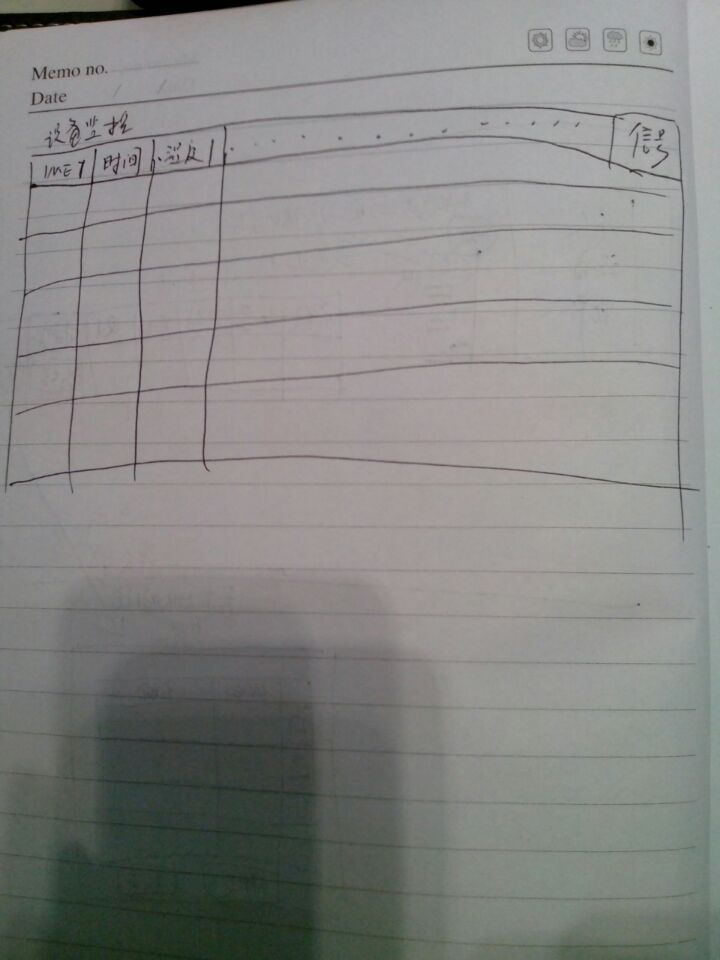 Memo no.
Date
设备监控
IMEI 时间 温度 ............ 信号